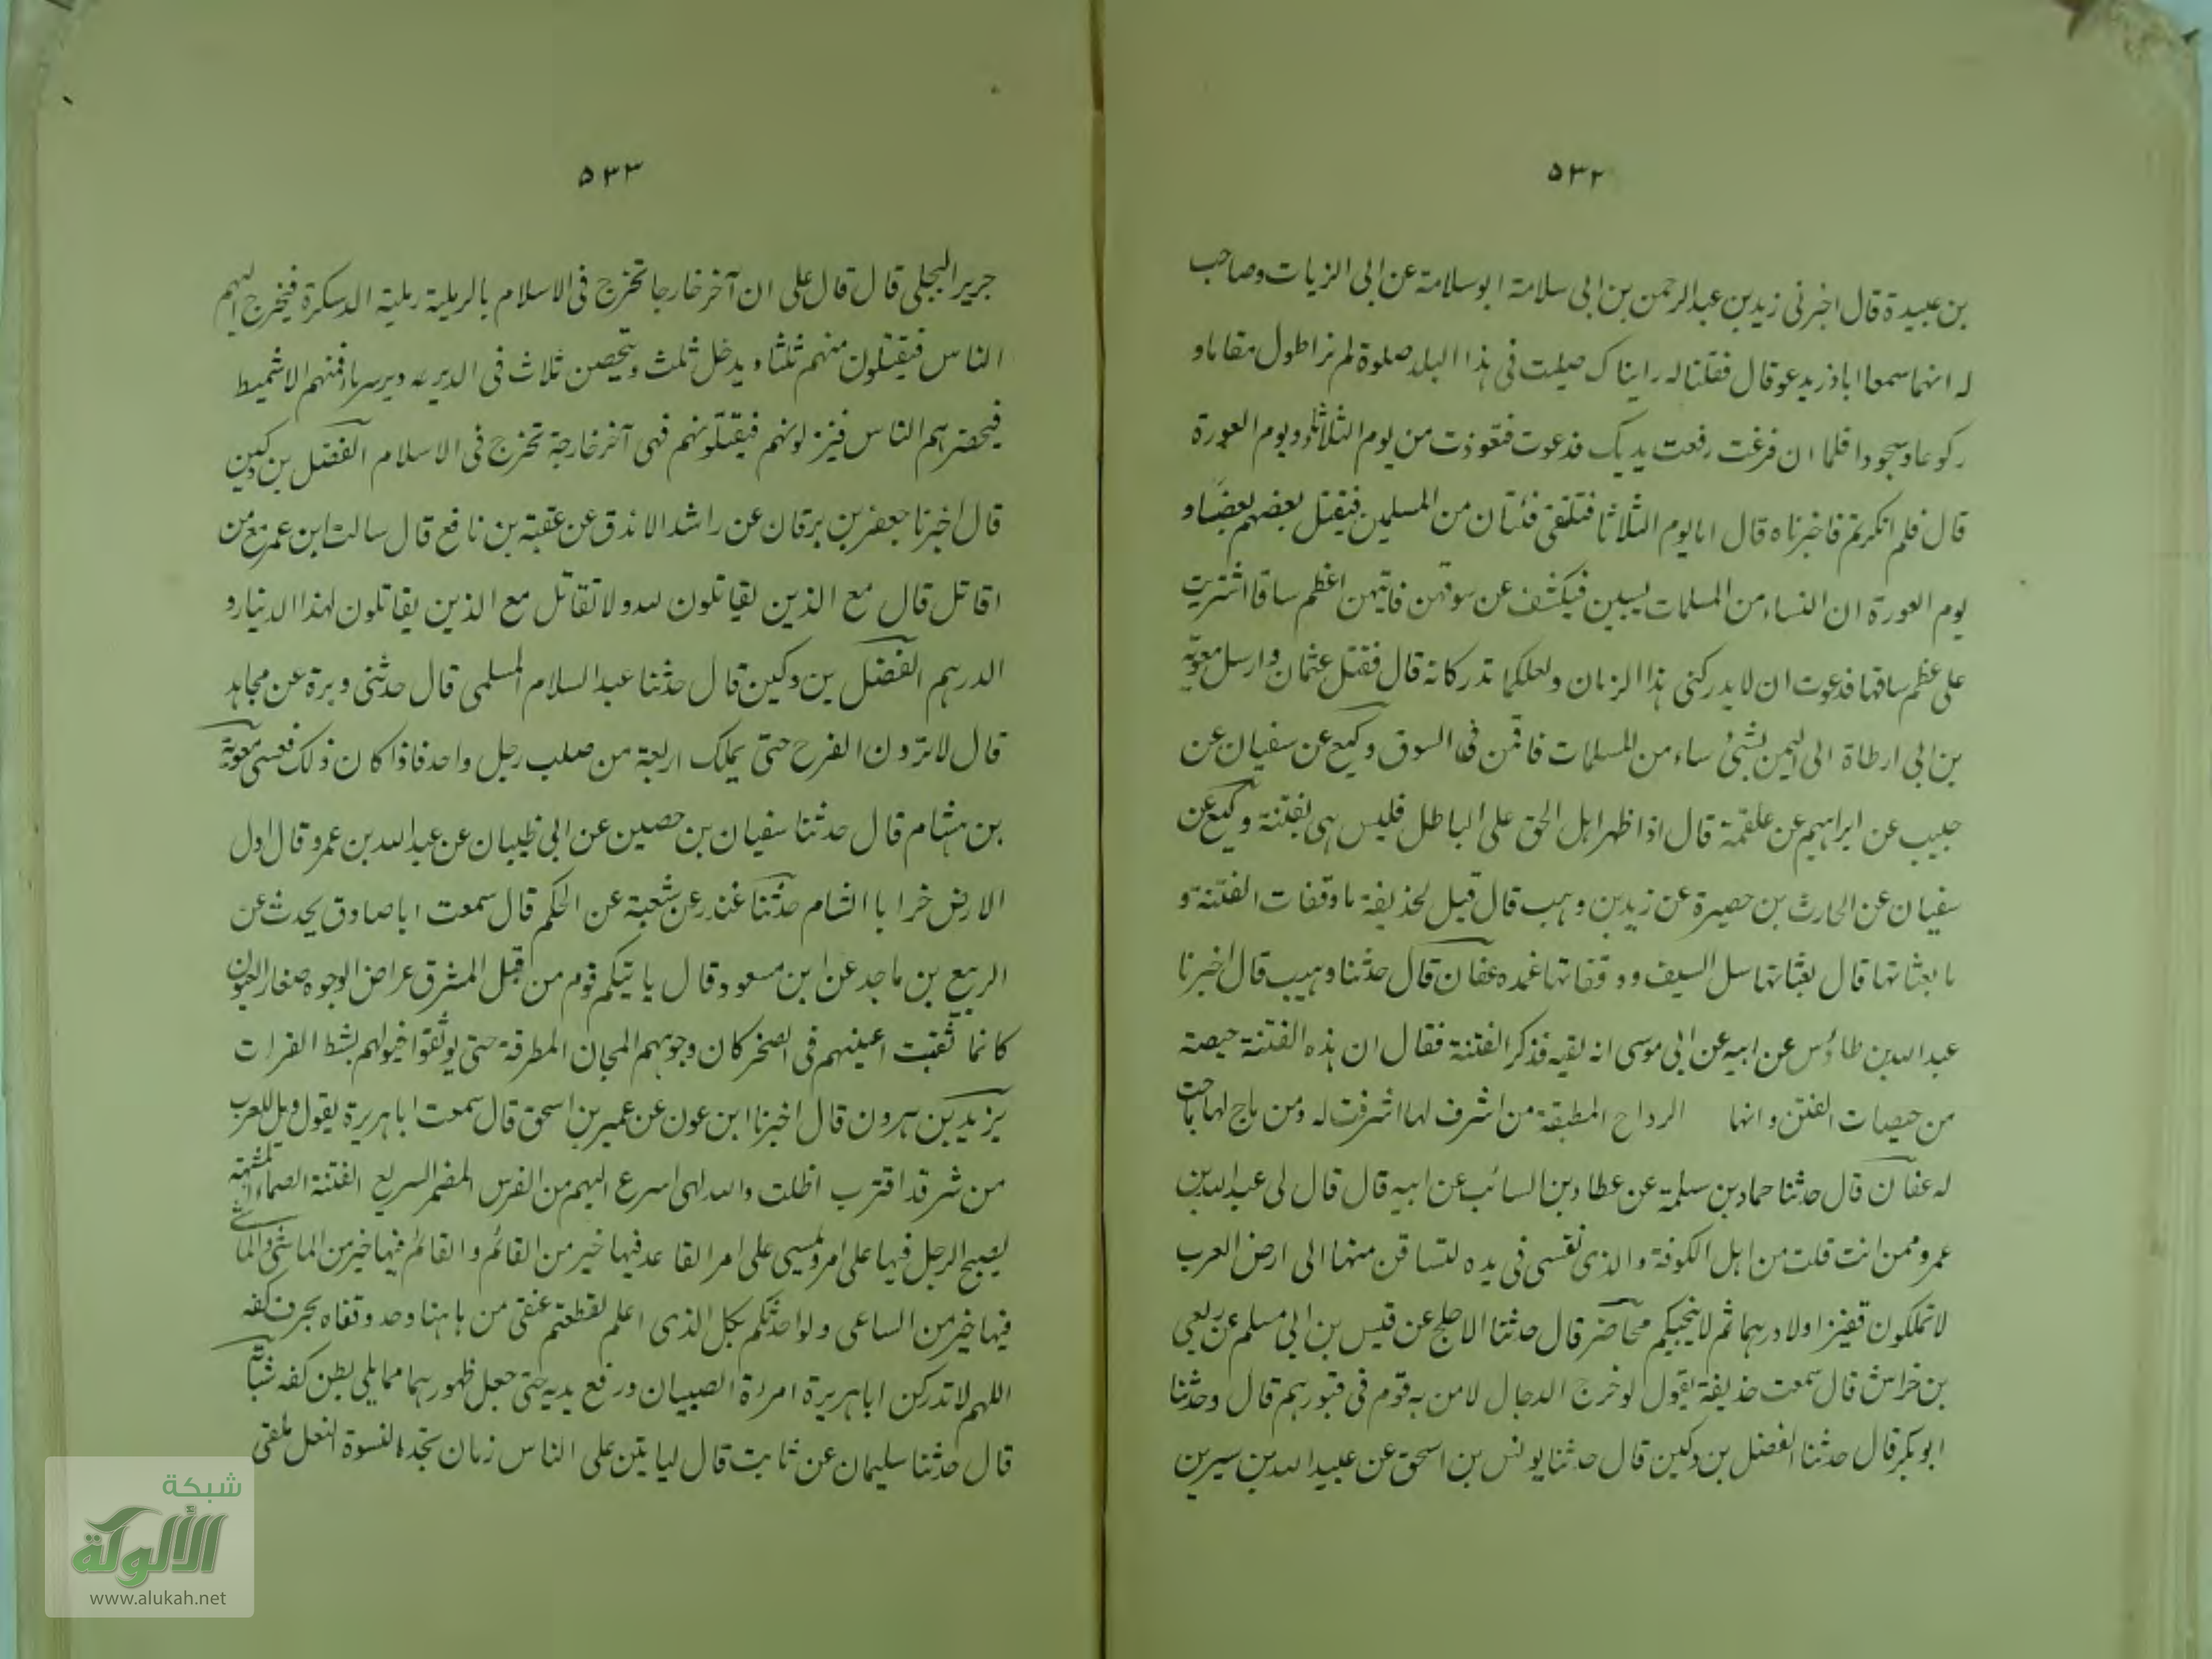 ٥٣٢
بن عبيدة قال اخبرنى زيد بن عبد الرحمن بن ابى سلامة ابو سلامة عن ابى الزيات وصاحب
له انهما سمعا اباذر يدعو قال فقلنا له رايناك صليت فى هذا البلد صلوة لم نر اطول مقاما و
ركوعا وسجودا فلما ان فرغت رفعت يديك فدعوت فتعوذت من يوم الثلاثاء ويوم العورة
قال فلم انكرتم فاخبرناه قال اما يوم الثلاثا فتلتقى فئتان من المسلمين فيقتل بعضهم بعضا و
يوم العورة ان النساء من المسلمات يسبين فيكشف عن سوقهن فايتهن اعظم ساقا اشتريت
على عظم ساقها فدعوت ان لا يدركنى هذا الزمان ولعلكما تدركانه قال فقتل عثمان وارسل معوية
بن ابى ارطاة الى اليمن نساء من المسلمات فاقمن فى السوق وكيع عن سفيان عن
حبيب عن ابراهيم عن علقمة قال اذا ظهر اهل الحق على الباطل فليس هى بفتنة وكيع عن
سفيان عن الحارث بن حصيرة عن زيد بن وهب قال قيل لحذيفة ما وقفات الفتنة و
ما بعثاتها قال بعثاتها سل السيف ووقفاتها غمده عفان قال حدثنا وهيب قال اخبرنا
عبد الله بن طاؤس عن ابيه عن ابى موسى انه لقيه فذكر الفتنة فقال ان هذه الفتنة حيصة
من حيصات الفتن وانها الرداح المطبقة من اشرف لها اشرفت له ومن ماج لها ماجت
له عفان قال حدثنا حماد بن سلمة عن عطاء بن السائب عن ابيه قال قال لى عبد الله بن
عمرو ممن انت قلت من اهل الكوفة والذى نفسى فى يده لتساقن منها الى ارض العرب
لا تملكون قفيزا ولا درهما ثم لا ينجيكم محاضر قال حدثنا الاجلح عن قيس بن ابى مسلم عن ربعى
بن خراش قال سمعت حذيفة يقول لو خرج الدجال لامن به قوم فى قبورهم قال وحدثنا
ابو بكر قال حدثنا الفضل بن دكين قال حدثنا يونس بن اسحق عن عبيد الله بن سيرين
٥٣٣
جرير البجلى قال قال على ان آخر خارجا تخرج فى الاسلام بالرملية رملية الدسكرة فيخرج اليهم
الناس فيقتلون منهم ثلثا ويدخل ثلث ويتحصن ثلاث فى الدير فمنهم الاشميط
فيحضرهم الناس فينزلونهم فيقتلونهم فهى آخر خارجة تخرج فى الاسلام الفضل بن دكين
قال اخبرنا جعفر بن برقان عن راشد الازرق عن عقبة بن نافع قال سالت ابن عمر مع من
اقاتل قال مع الذين يقاتلون لله ولا تقاتل مع الذين يقاتلون لهذا الدينار و
الدرهم الفضل بن دكين قال حدثنا عبد السلام المسلمى قال حدثنى وبرة عن مجاهد
قال لا ترون الفرح حتى يملك اربعة من صلب رجل واحد فاذا كان ذلك فعسى معوية
بن هشام قال حدثنا سفيان بن حصين عن ابى ظبيان عن عبد الله بن عمرو قال اول
الارض خرابا الشام حدثنا غندر عن شعبة عن الحكم قال سمعت ابا صادق يحدث عن
الربيع بن ماجد عن ابن مسعود قال ياتيكم قوم من قبل المشرق عراض الوجوه صغار العيون
كانما ثقبت اعينهم فى الصخر كان وجوههم المجان المطرقة حتى يوثقوا خيولهم بشط الفرات
يزيد بن هرون قال اخبرنا ابن عون عن عمير بن اسحق قال سمعت ابا هريرة يقول ويل للعرب
من شر قد اقترب اظلت والله لهى اسرع اليهم من الفرس المضمر السريع الفتنة الصماء المشبهة
يصبح الرجل فيها على امر ويمسى على امر القاعد فيها خير من القائم والقائم فيها خير من الماشى والماشى
فيها خير من الساعى ولو احدثكم بكل الذى اعلم لقطعتم عنقى من هاهنا وحد وقفاه بحرف كفه
اللهم لا تدركن ابا هريرة امرة الصبيان ورفع يديه حتى جعل ظهورهما مما يلى بطن كفه شبابة
قال حدثنا سليمان عن ثابت قال لياتين على الناس زمان تجده النسوة النعل ملقى
شبكة
الألوكة
www.alukah.net